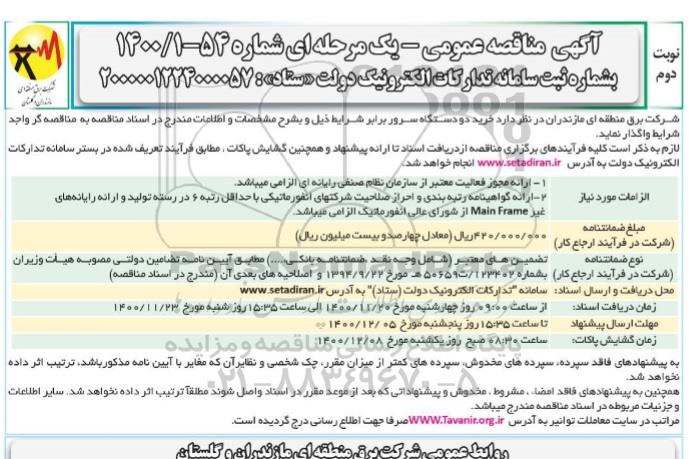 آگهی مناقصه عمومی - یک مرحله ای شماره ۵۴-۱۴۰۰/۱
بشماره ثبت سامانه تدارکات الکترونیک دولت «ستاد»: ۲۰۰۰۰۰۱۲۲۴۰۰۰۰۵۷
نوبت دوم
شرکت برق منطقه ای مازندران و گلستان
شرکت برق منطقه ای مازندران در نظر دارد خرید دو دستگاه سرور برابر شرایط ذیل و بشرح مشخصات و اطلاعات مندرج در اسناد مناقصه به مناقصه گر واجد
شرایط واگذار نماید.
لازم به ذکر است کلیه فرآیندهای برگزاری مناقصه از دریافت اسناد تا ارائه پیشنهاد و همچنین گشایش پاکات ، مطابق فرآیند تعریف شده در بستر سامانه تدارکات
الکترونیک دولت به آدرس www.setadiran.ir انجام خواهد شد.
الزامات مورد نیاز
۱- ارائه مجوز فعالیت معتبر از سازمان نظام صنفی رایانه ای الزامی میباشد.
۲-ارائه گواهینامه رتبه بندی و احراز صلاحیت شرکتهای انفورماتیکی با حداقل رتبه ۶ در رسته تولید و ارائه رایانه‌های
غیر Main Frame از شورای عالی انفورماتیک الزامی میباشد.
مبلغ ضمانتنامه
(شرکت در فرآیند ارجاع کار)
۴۲۰/۰۰۰/۰۰۰ ریال (معادل چهارصدو بیست میلیون ریال)
نوع ضمانتنامه
(شرکت در فرآیند ارجاع کار)
تضمین های معتبر (شامل وجه نقد ضمانتنامه بانکی.....) مطابق آیین نامه تضامین دولتی مصوبه هیأت وزیران
بشماره ۱۲۳۴۰۲/ت۵۰۶۵۹ هـ مورخ ۱۳۹۴/۹/۲۲ و اصلاحیه های بعدی آن (مندرج در اسناد مناقصه)
محل دریافت و ارسال اسناد: سامانه "تدارکات الکترونیک دولت (ستاد)" به آدرس www.setadiran.ir
زمان دریافت اسناد: از ساعت ۰۹:۰۰ روز چهارشنبه مورخ ۱۴۰۰/۱۱/۲۰ الی ساعت ۱۵:۳۵ روز شنبه مورخ ۱۴۰۰/۱۱/۲۳
مهلت ارسال پیشنهاد تا ساعت ۱۵:۳۵ روز پنجشنبه مورخ ۱۴۰۰/۱۲/۰۵
زمان گشایش پاکات: ساعت ۰۸:۳۰ صبح روز یکشنبه مورخ ۱۴۰۰/۱۲/۰۸
به پیشنهادهای فاقد سپرده، سپرده های مخدوش، سپرده های کمتر از میزان مقرر، چک شخصی و نظایر آن که مغایر با آیین نامه مذکور باشد، ترتیب اثر داده
نخواهد شد.
همچنین به پیشنهادهای فاقد امضاء ، مشروط ، مخدوش و پیشنهاداتی که بعد از موعد مقرر در اسناد واصل شوند مطلقاً ترتیب اثر داده نخواهد شد. سایر اطلاعات
و جزئیات مربوطه در اسناد مناقصه مندرج میباشد.
مراتب در سایت معاملات توانیر به آدرس WWW.Tavanir.org.ir صرفا جهت اطلاع رسانی درج گردیده است.
پایگاه اطلاع رسانی مناقصه و مزایده
۰۲۱-۸۸۳۴۹۶۷۰-۵
روابط عمومی شرکت برق منطقه ای مازندران و گلستان